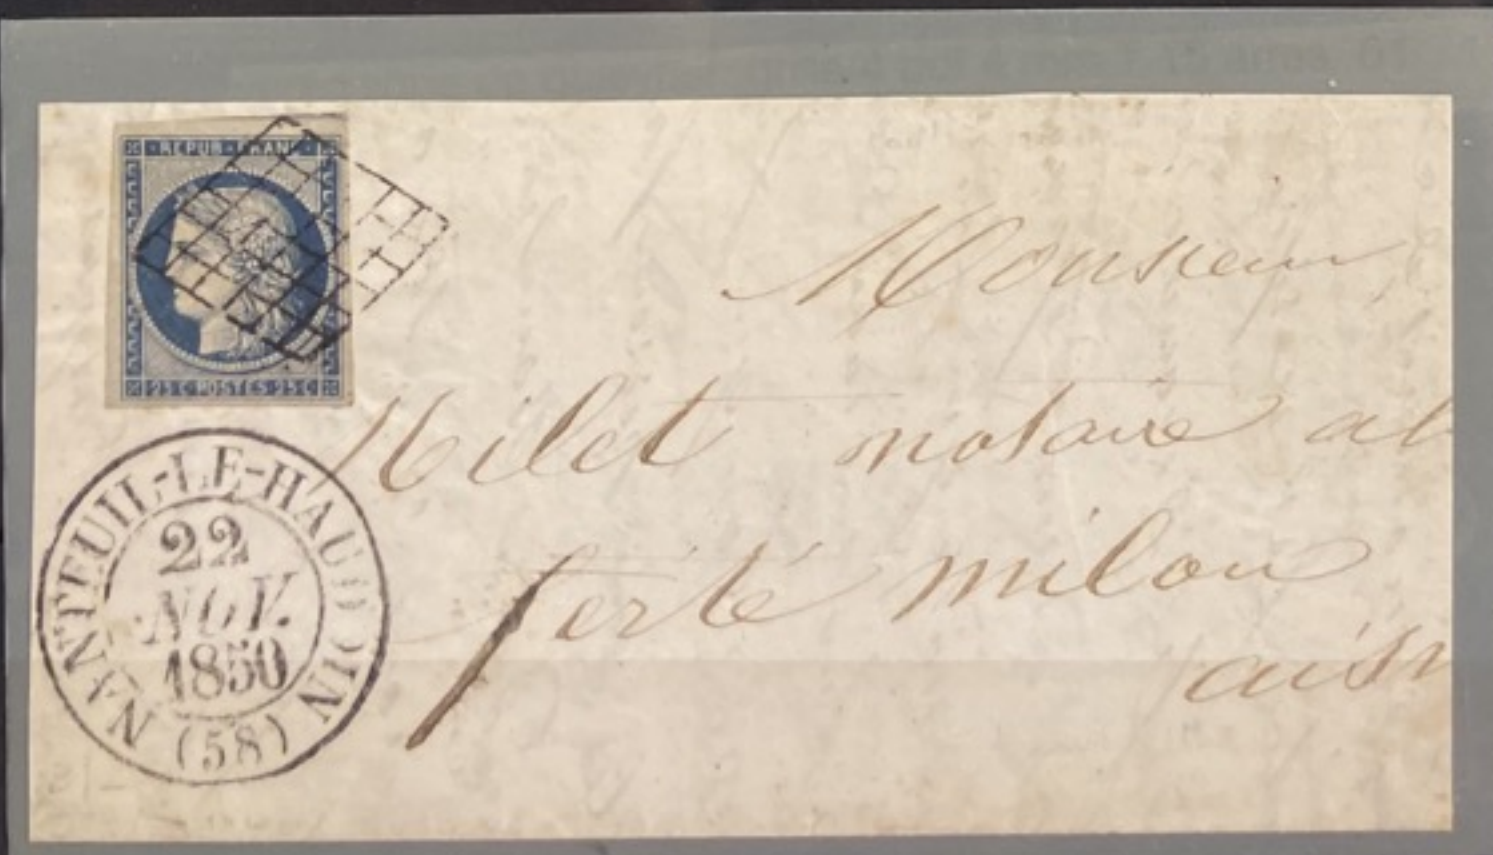 REPUB · FRANC
25 C POSTES 25 C
NANTEUIL-LE-HAUDOUIN (58)
22
NOV.
1850
Monsieur,
Milet notaire a l
ferté milon
aisn